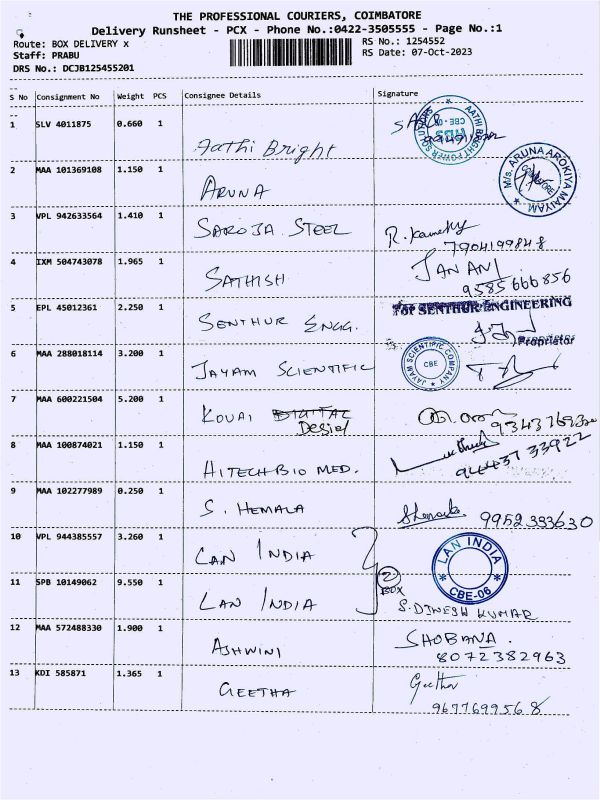 THE PROFESSIONAL COURIERS, COIMBATORE
Delivery Runsheet - PCX - Phone No.:0422-3505555 - Page No.:1
Route: BOX DELIVERY x RS No.: 1254552
Staff: PRABU RS Date: 07-Oct-2023
DRS No.: DCJB125455201
S No Consignment No Weight PCS Consignee Details Signature
1 SLV 4011875 0.660 1
Aathi Bright
AATHI BRIGHT POWER SOLUTIONS
2 MAA 101369108 1.150 1
ARUNA
M/s. ARUNA AROKIYA MAIYAM
COIMBATORE
3 VPL 942633564 1.410 1
SAROJA STEEL
7904199848
4 IXM 504743078 1.965 1
SATHISH
JANANI
9585666856
5 EPL 45012361 2.250 1
SENTHUR ENGG.
For SENTHUR ENGINEERING
Proprietor
6 MAA 288018114 3.200 1
JAYAM SCIENTIFIC
JAYAM SCIENTIFIC COMPANY
CBE
7 MAA 600221504 5.200 1
KOVAI DIGITAL
Desiel
8 MAA 100874021 1.150 1
HITECH BIO MED.
9443733922
9 MAA 102277989 0.250 1
S. HEMALA
9952333630
10 VPL 944385557 3.260 1
LAN INDIA
LAN INDIA
CBE-06
11 SPB 10149062 9.550 1
2
BOX
LAN INDIA
S. DINESH KUMAR
12 MAA 572488330 1.900 1
ASHWINI
SHOBANA.
8072382963
13 KDI 585871 1.365 1
GEETHA
Geetha
9677699568